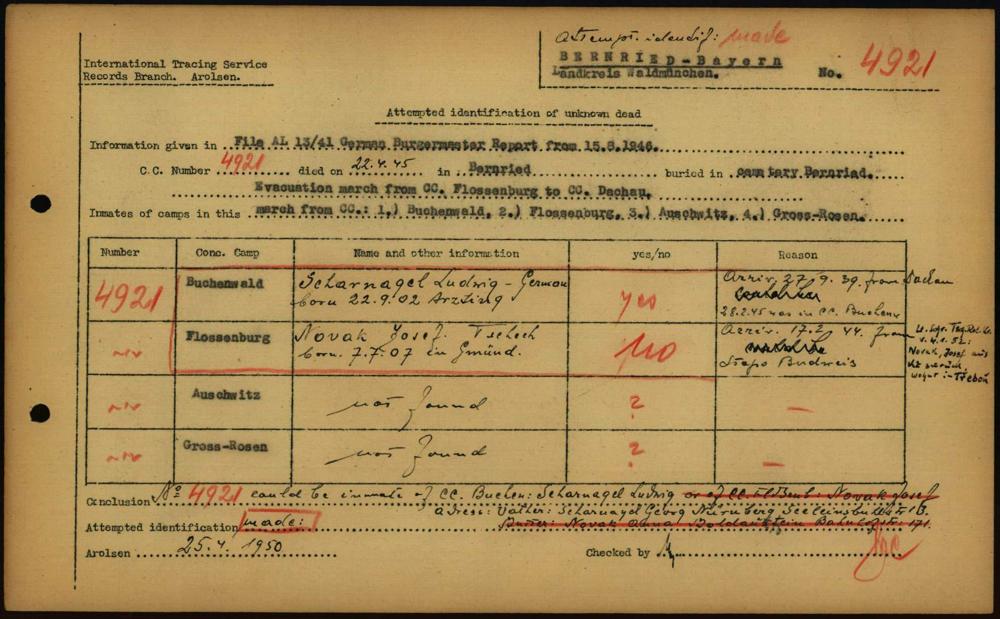 Attempt. identif: made
International Tracing Service
Records Branch. Arolsen.
BERNRIED-Bayern
Landkreis Waldmünchen.
No. 4921
Attempted identification of unknown dead
Information given in File AL 13/41 German Burgermester Report from 15.8.1946.
C.C. Number 4921 died on 22.4.45 in Bernried buried in cemtary Bernried.
Evacuation march from CC. Flossenburg to CC. Dachau.
Inmates of camps in this march from CC.: 1.) Buchenwald, 2.) Flossenburg, 3.) Auschwitz, 4.) Gross-Rosen.
Number Conc. Camp Name and other information yes/no Reason
4921 Buchenwald Scharnagel Ludwig - German yes Arriv. 27.9.39. from Dachau
born 22.9.02
28.2.45 was in CC. Buchenw
Flossenburg Novak Josef. Tschech No Arriv. 17.2. 44. from
born. 7.7.07 in Gmünd.
Stapo Budweis
v. 4.1.52:
Novak, Josef aus
wohnt in Třeboň
Auschwitz not found ? —
Gross-Rosen not found ? —
Conclusion No 4921 could be inmate of CC. Buchen: Scharnagel Ludwig or of CC. Flossenb: Novak Josef
Adress: Vather: Scharnagel Georg Nürnberg
Attempted identification made:
Novak Anna
Arolsen 25.4. 1950 Checked by